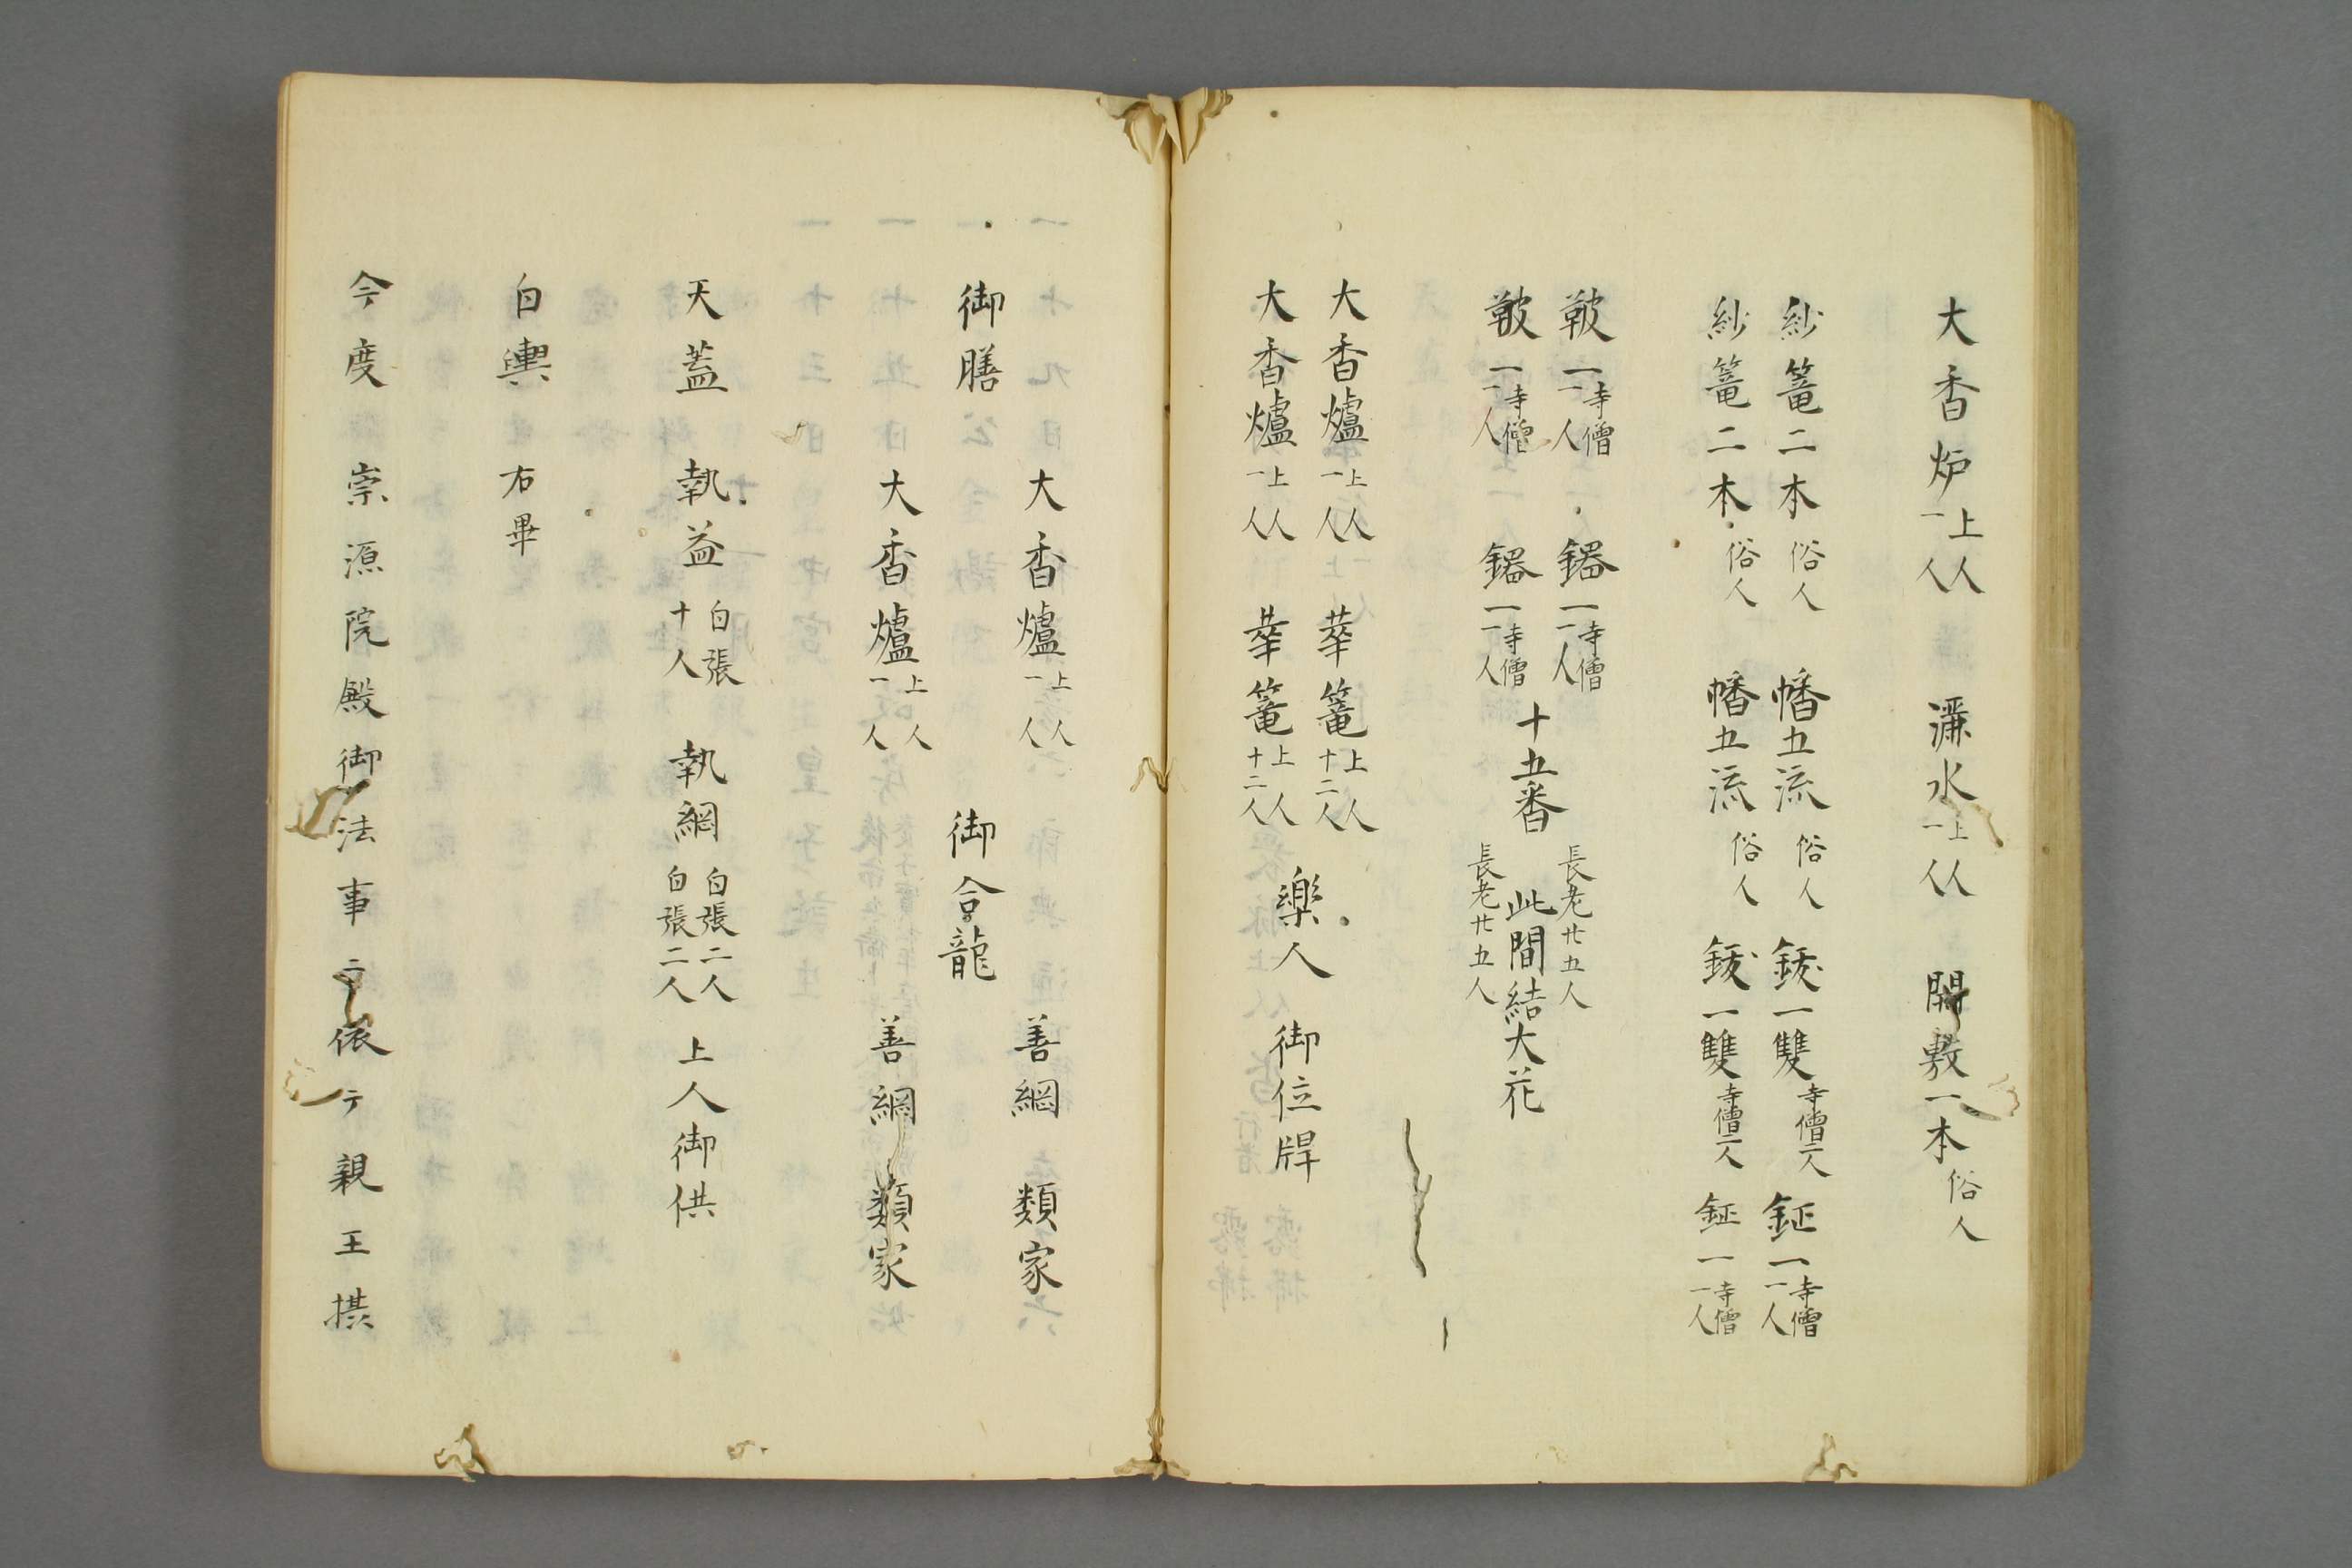 大香炉 上人一人 灑水 上人一人 開敷一本 俗人
紗篭二本 俗人 幡五流 俗人 鈸一雙 寺僧二人 鉦一 寺僧一人
紗篭二本 俗人 幡五流 俗人 鈸一雙 寺僧二人 鉦一 寺僧一人
鼓一 寺僧一人 鐃一 寺僧一人
十五番 長老廿五人 長老廿五人 此間結大花
鼓一 寺僧一人 鐃一 寺僧一人
大香爐 上人一人 華篭 上人十二人
大香爐 上人一人 華篭 上人十二人
樂人 御位牌
大香爐 上人一人 善綱 類家
御膳 御龕
大香爐 上人一人 善綱 類家
天蓋 執盖 白張十人 執綱 白張二人 白張二人 上人御供
白輿 右畢
今度崇源院殿御法事ニ依テ親王摂